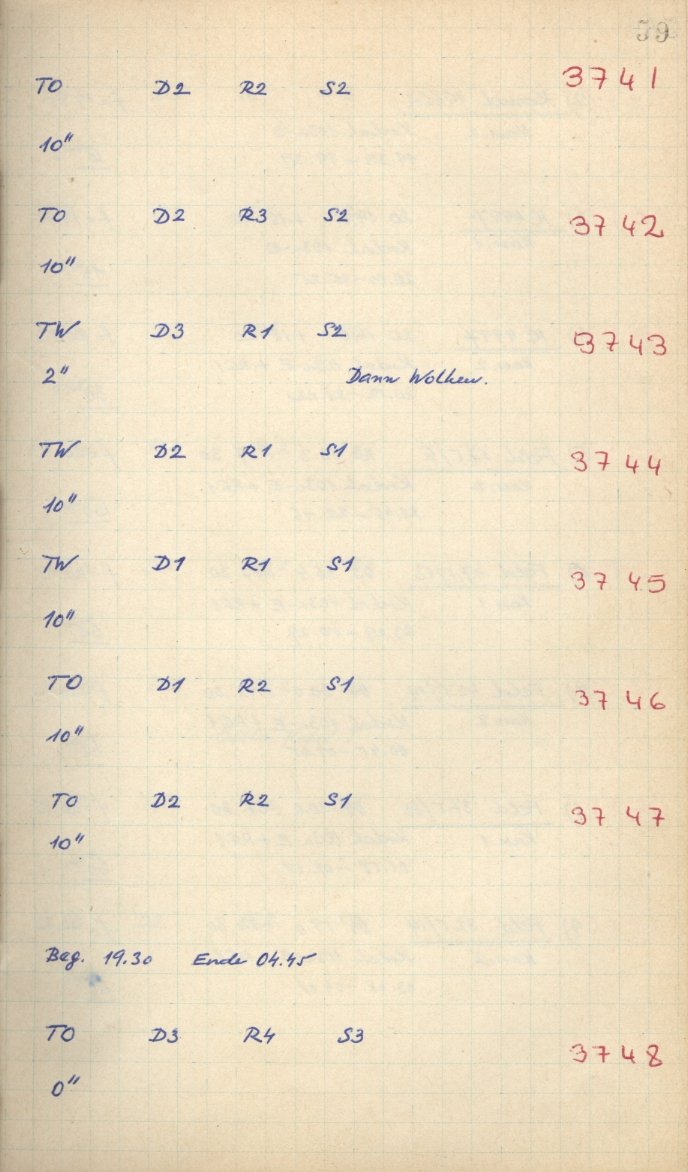 59
TO D2 R2 S2 3741
10"
TO D2 R3 S2 3742
10"
TW D3 R1 S2 3743
2" Dann Wolken.
TW D2 R1 S1 3744
10"
TW D1 R1 S1 3745
10"
TO D1 R2 S1 3746
10"
TO D2 R2 S1 3747
10"
Beg. 19.30 Ende 04.45
TO D3 R4 S3 3748
0"